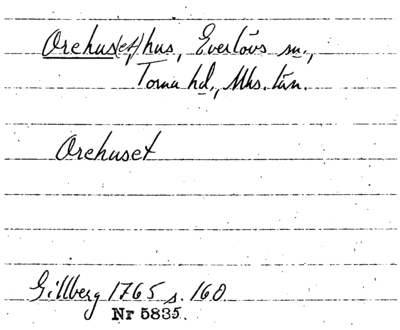 Orehus(et) hus, Everlövs sn.,
Torna hd., Mhs. län.
Orehuset
Gillberg 1765 s. 160.
Nr 5835.